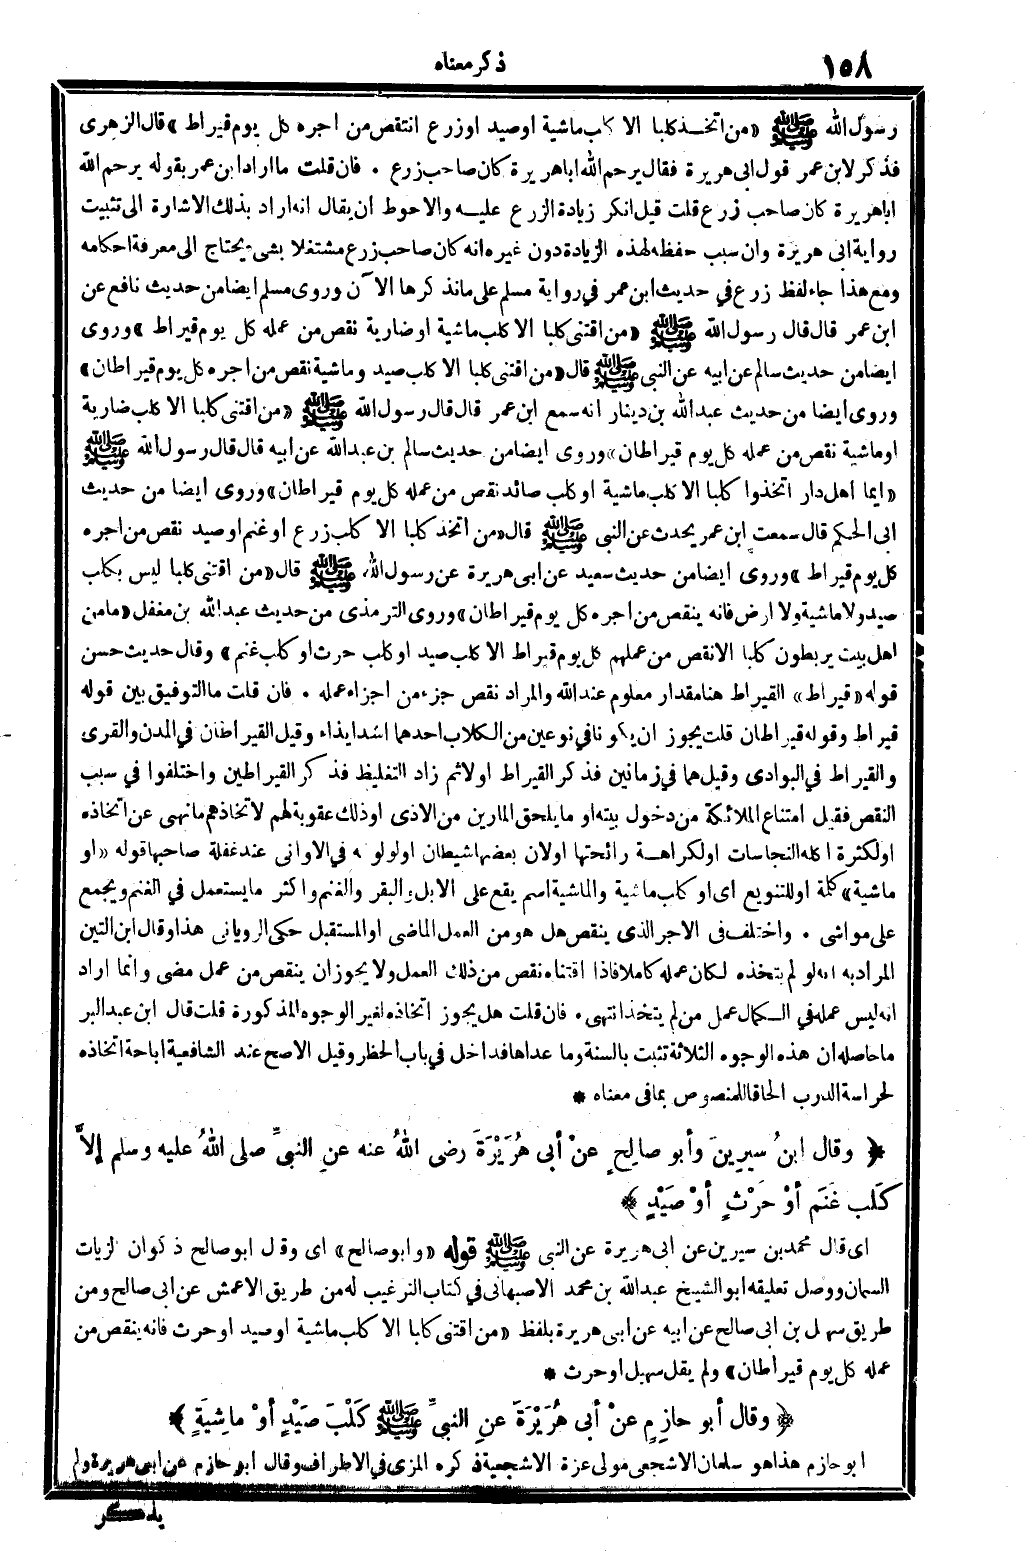 ١٥٨
ذكر معناه
رسول الله ﷺ «من اتخذ كلبا الا كلب ماشية اوصيد اوزرع انتقص من اجره كل يوم قيراط» قال الزهرى
فذكر لابن عمر قول ابى هريرة فقال يرحم الله اباهريرة كان صاحب زرع . فان قلت ما اراد ابن عمر بقوله يرحم الله
اباهريرة كان صاحب زرع قلت قيل انكر زيادة الزرع عليه والاحوط ان يقال انه اراد بذلك الاشارة الى تثبيت
رواية ابى هريرة وان سبب حفظه لهذه الزيادة دون غيره انه كان صاحب زرع مشتغلا بشىء يحتاج الى معرفة احكامه
ومع هذا جاء لفظ زرع في حديث ابن عمر في رواية مسلم على ما نذكرها الآن وروى مسلم ايضا من حديث نافع عن
ابن عمر قال قال رسول الله ﷺ «من اقتنى كلبا الا كلب ماشية اوضارية نقص من عمله كل يوم قيراط» وروى
ايضا من حديث سالم عن ابيه عن النبي ﷺ قال «من اقتنى كلبا الا كلب صيد وماشية نقص من اجره كل يوم قيراطان»
وروى ايضا من حديث عبدالله بن دينار انه سمع ابن عمر قال قال رسول الله ﷺ «من اقتنى كلبا الا كلب ضارية
اوماشية نقص من عمله كل يوم قيراطان» وروى ايضا من حديث سالم بن عبدالله عن ابيه قال قال رسول الله ﷺ
«ايما اهل دار اتخذوا كلبا الا كلب ماشية اوكلب صائد نقص من عمله كل يوم قيراطان» وروى ايضا من حديث
ابى الحكم قال سمعت ابن عمر يحدث عن النبى ﷺ قال «من اتخذ كلبا الا كلب زرع اوغنم اوصيد نقص من اجره
كل يوم قيراط» وروى ايضا من حديث سعيد عن ابى هريرة عن رسول الله ﷺ قال «من اقتنى كلبا ليس بكلب
صيد ولا ماشية ولا ارض فانه ينقص من اجره كل يوم قيراطان» وروى الترمذى من حديث عبدالله بن مغفل «مامن
اهل بيت يربطون كلبا الا نقص من عملهم كل يوم قيراط الا كلب صيد اوكلب حرث اوكلب غنم» وقال حديث حسن
قوله «قيراط» القيراط هنا مقدار معلوم عندالله والمراد نقص جزء من اجزاء عمله . فان قلت ما التوفيق بين قوله
قيراط وقوله قيراطان قلت يجوز ان يكونا في نوعين من الكلاب احدهما اشد ايذاء وقيل القيراطان في المدن والقرى
والقيراط في البوادى وقيل هما في زمانين فذكر القيراط اولا ثم زاد التغليظ فذكر القيراطين واختلفوا في سبب
النقص فقيل امتناع الملائكة من دخول بيته او ما يلحق المارين من الاذى اوذلك عقوبة لهم لاتخاذهم مانهى عن اتخاذه
اولكثرة اكله النجاسات اولكراهة رائحتها اولان بعضها شيطان اولولوغه في الاوانى عند غفلة صاحبها قوله «او
ماشية» كلمة او للتنويع اى او كلب ماشية والماشية اسم يقع على الابل والبقر والغنم واكثر ما يستعمل في الغنم ويجمع
على مواشى . واختلف في الاجر الذى ينقص هل هو من العمل الماضى او المستقبل حكى الرويانى هذا وقال ابن التين
المراد به انه لو لم يتخذه لكان عمله كاملا فاذا اقتناه نقص من ذلك العمل ولا يجوز ان ينقص من عمل مضى وانما اراد
انه ليس عمله في الكمال عمل من لم يتخذ انتهى . فان قلت هل يجوز اتخاذه لغير الوجوه المذكورة قلت قال ابن عبدالبر
ما حاصله ان هذه الوجوه الثلاثة تثبت بالسنة وما عداها فداخل في باب الحظر وقيل الاصح عند الشافعية اباحة اتخاذه
لحراسة الدرب الحاقا للمنصوص بما في معناه *
﴿ وقال ابنُ سيرينَ وأبو صالحٍ عنْ أبى هُرَيْرَةَ رضى اللهُ عنه عنِ النبىِّ صلى اللهُ عليه وسلم إلاَّ
كَلب غَنَمٍ أوْ حَرْثٍ أوْ صَيْدٍ ﴾
اى قال محمد بن سيرين عن ابى هريرة عن النبى ﷺ قوله «وابوصالح» اى وقال ابوصالح ذكوان الزيات
السمان ووصل تعليقه ابو الشيخ عبدالله بن محمد الاصبهانى في كتاب الترغيب له من طريق الاعمش عن ابى صالح ومن
طريق سهل بن ابى صالح عن ابيه عن ابى هريرة بلفظ «من اقتنى كلبا الا كلب ماشية اوصيد اوحرث فانه ينقص من
عمله كل يوم قيراطان» ولم يقل سهيل اوحرث *
﴿ وقال أبو حازمٍ عنْ أبى هُرَيْرَةَ عنِ النبىِّ ﷺ كَلْبَ صَيْدٍ أوْ ماشيَةٍ ﴾
ابوحازم هذا هو سلمان الاشجعى مولى عزة الاشجعية ذكره المزى في الاطراف وقال ابوحازم عن ابى هريرة ولم
يذكر